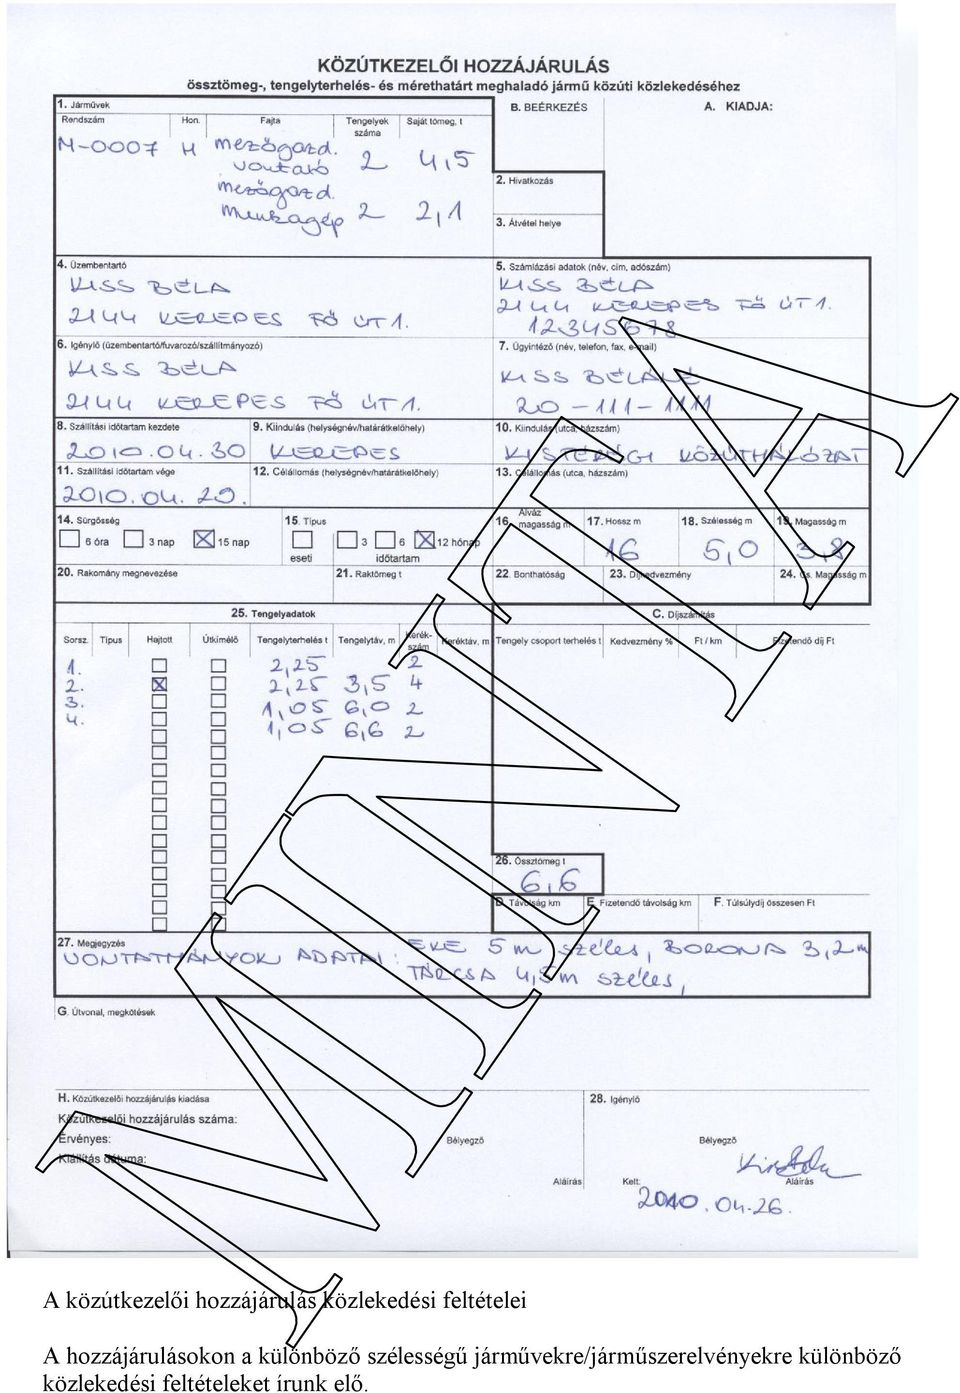 KÖZÚTKEZELŐI HOZZÁJÁRULÁS
össztömeg-, tengelyterhelés- és mérethatárt meghaladó jármű közúti közlekedéséhez
1. Járművek
B. BEÉRKEZÉS
A. KIADJA:
Rendszám Hon. Fajta Tengelyek száma Saját tömeg, t
M-0007 H mezőgazd. vontató 2 4,5
mezőgazd. munkagép 2 2,1
2. Hivatkozás
3. Átvétel helye
4. Üzembentartó
KISS BÉLA
2144 KEREPES FŐ ÚT 1.
5. Számlázási adatok (név, cím, adószám)
KISS BÉLA
2144 KEREPES FŐ ÚT 1.
12345678
6. Igénylő (üzembentartó/fuvarozó/szállítmányozó)
KISS BÉLA
2144 KEREPES FŐ ÚT 1.
7. Ügyintéző (név, telefon, fax, e-mail)
KISS BÉLÁNÉ
20-111-1111
8. Szállítási időtartam kezdete
2010.04.30
9. Kiindulás (helységnév/határátkelőhely)
KEREPES
10. Kiindulás (utca, házszám)
KISTÉRSÉGI KÖZÚTHÁLÓZAT
11. Szállítási időtartam vége
2010.04.29.
12. Célállomás (helységnév/határátkelőhely)
13. Célállomás (utca, házszám)
14. Sürgősség
6 óra 3 nap 15 nap
15. Típus
eseti 3 6 12 hónap
időtartam
16. Alváz magasság m
17. Hossz m
16
18. Szélesség m
5,0
19. Magasság m
3,8
20. Rakomány megnevezése
21. Raktömeg t
22. Bonthatóság
23. Díjkedvezmény
24. Cs. Magasság m
25. Tengelyadatok
C. Díjszámítás
Sorsz. Típus Hajtott Útkímélő Tengelyterhelés t Tengelytáv, m Kerék-szám Keréktáv, m Tengely csoport terhelés t Kedvezmény % Ft / km Fizetendő díj Ft
1. 2,25 2
2. 2,25 3,5 4
3. 1,05 6,0 2
4. 1,05 6,6 2
26. Össztömeg t
6,6
D. Távolság km
E. Fizetendő távolság km
F. Túlsúlydíj összesen Ft
27. Megjegyzés
VONTATMÁNYOK ADATAI: EKE 5 m széles, BORONA 3,2 m
TÁRCSA 4,5 m széles,
G. Útvonal, megkötések
H. Közútkezelői hozzájárulás kiadása
Közútkezelői hozzájárulás száma:
Érvényes:
Kiállítás dátuma:
Bélyegző
Aláírás
28. Igénylő
Bélyegző
Kelt:
Aláírás
2010.04.26.
MUNKAANYAG
A közútkezelői hozzájárulás közlekedési feltételei
A hozzájárulásokon a különböző szélességű járművekre/járműszerelvényekre különböző
közlekedési feltételeket írunk elő.